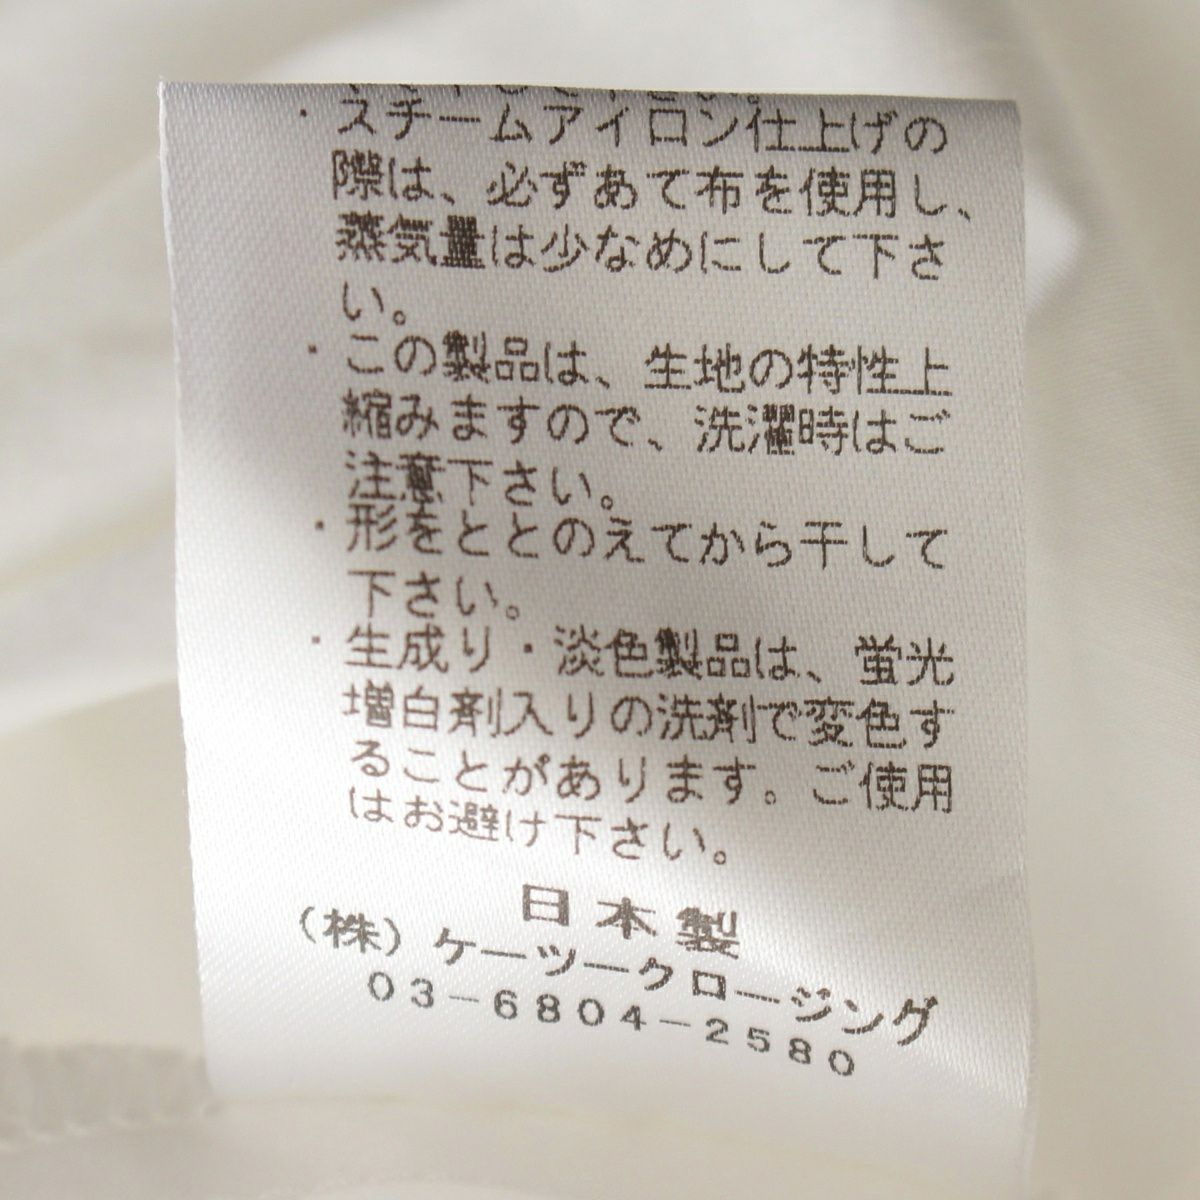 ・スチームアイロン仕上げの
際は、必ずあて布を使用し、
蒸気量は少なめにして下さ
い。
・この製品は、生地の特性上
縮みますので、洗濯時はご
注意下さい。
・形をととのえてから干して
下さい。
・生成り・淡色製品は、蛍光
増白剤入りの洗剤で変色す
ることがあります。ご使用
はお避け下さい。
日本製
(株)ケーツークロージング
03-6804-2580